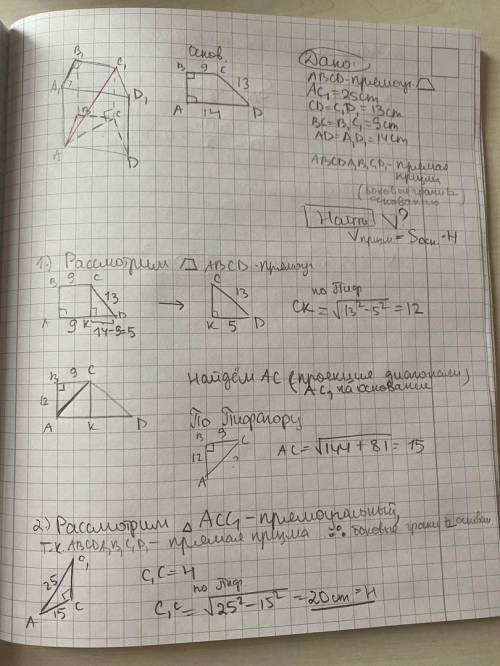 Основ.
B 9 C
13
A 14 D
B₁ C₁
A₁ D₁
B C
A D
Дано:
ABCD-прямоуг.
AC₁=25cm
CD=C₁D₁=13cm
BC=B₁C₁=9cm
AD=A₁D₁=14cm
ABCDA₁B₁C₁D₁-прямая
призма
(боковые грани ⊥
основанию)
Найти V?
Vпризм=Sосн.·H
1.) Рассмотрим ABCD-прямоуг
B 9 C
13
A 9 K D
14-9=5
→
C
13
K 5 D
по Пиф
CK=√13²-5²=12
B 9 C
12
A K D
Найдём AC (проекция диагонали)
AC₁ на основание
По Пифагору
B 9 C
12 ?
A
AC=√144+81=15
2.) Рассмотрим △ ACC₁-прямоугольный,
т.к. ABCDA₁B₁C₁D₁-прямая призма боковые грани ⊥ основан
C₁
25
A 15 C
C₁C=H
по Пиф.
C₁C=√25²-15²=20cm=H